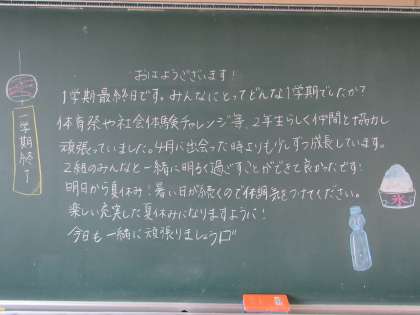 おはようございます！
1学期最終日です。みんなにとってどんな1学期でしたか？
体育祭や社会体験チャレンジ等、2年生らしく仲間と協力し
頑張っていました。4月に出会った時よりも少しずつ成長しています。
2組のみんなと一緒に明るく過ごすことができて良かったです！
明日から夏休み！暑い日が続くので体調気をつけてください。
楽しい充実した夏休みになりますように！
今日も一緒に頑張りましょう
一学期終了
氷